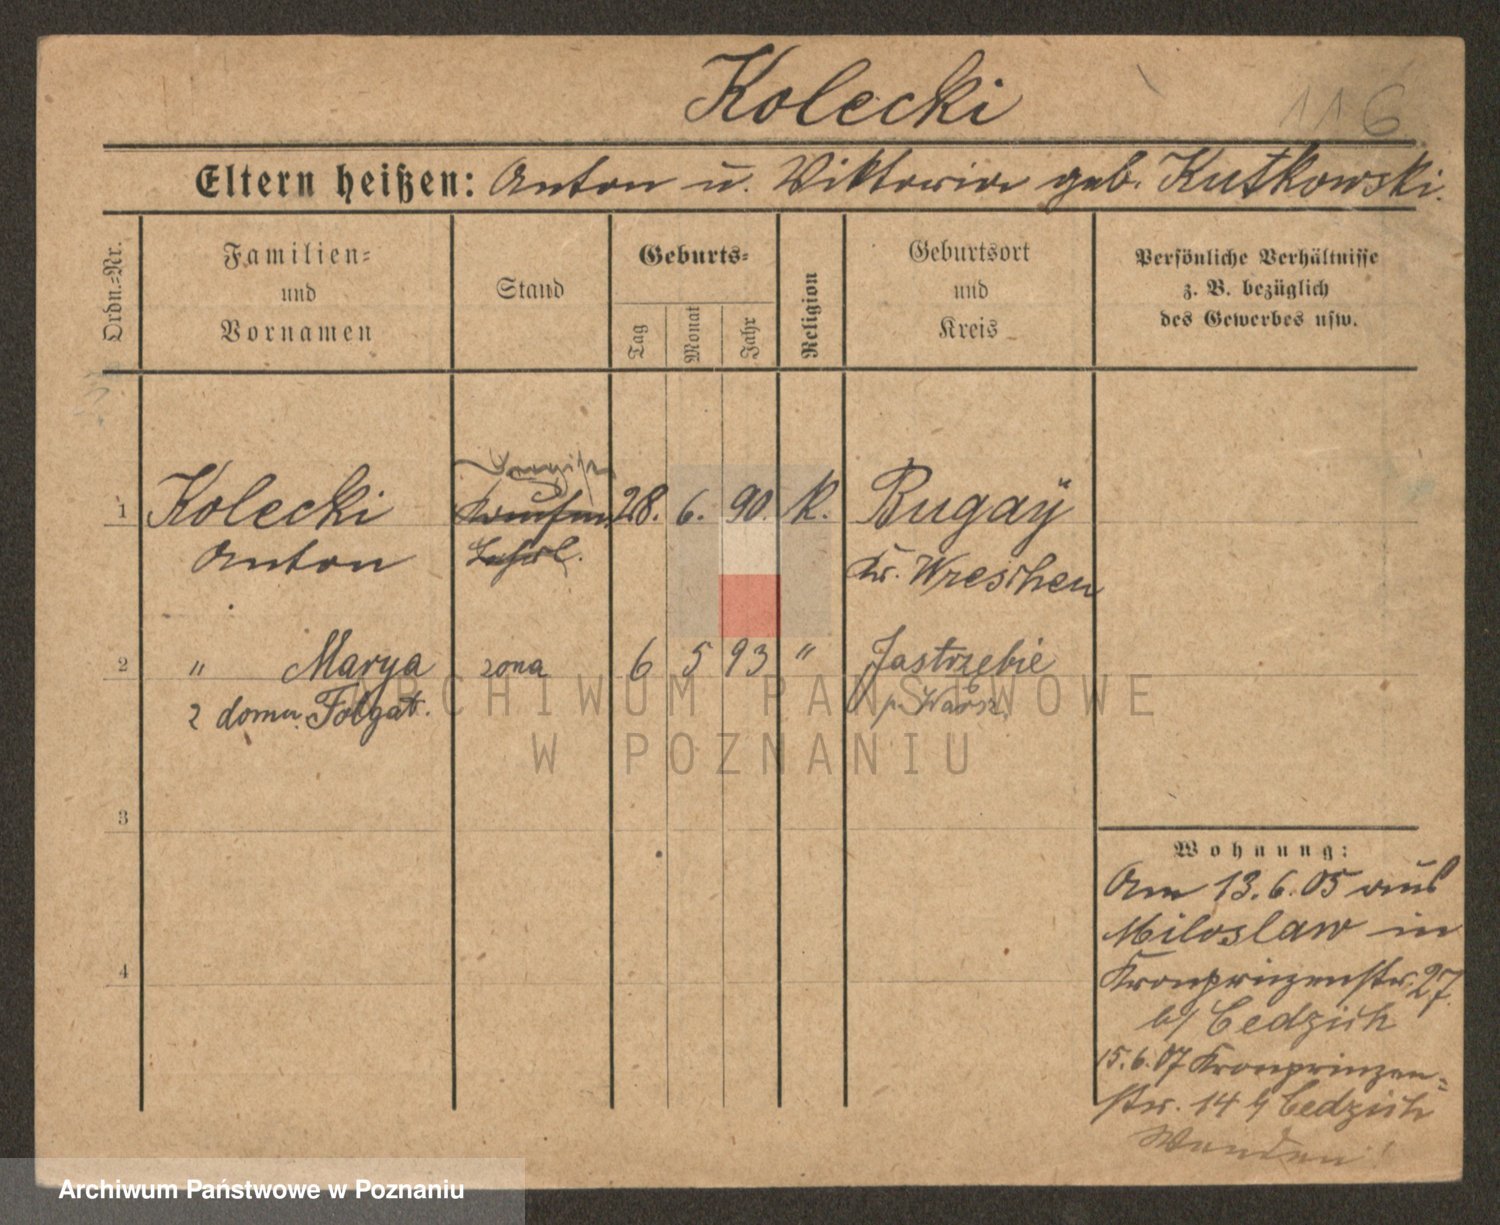 Kolecki
116
Eltern heißen: Anton u. Viktoria geb. Kutkowski.
Ordn.=Nr.
Familien=
und
Vornamen
Stand
Geburts=
Tag
Monat
Jahr
Religion
Geburtsort
und
Kreis
Persönliche Verhältnisse
z. B. bezüglich
des Gewerbes usw.
1 Kolecki 28. 6. 90. K. Bugaÿ
Anton Lehrl. Kr. Wreschen
2 " Marya zona 6 5 93 " Jastrzębie
z domu Folgat. p. Warsz.
3
4
Wohnung:
Am 13.6.05 aus
Miloslaw in
Kronprinzenstr. 27.
b/ Cedzich
15.6.07 Kronprinzen=
str. 14 b/ Cedzich
Wenden!
ARCHIWUM PAŃSTWOWE
W POZNANIU
Archiwum Państwowe w Poznaniu